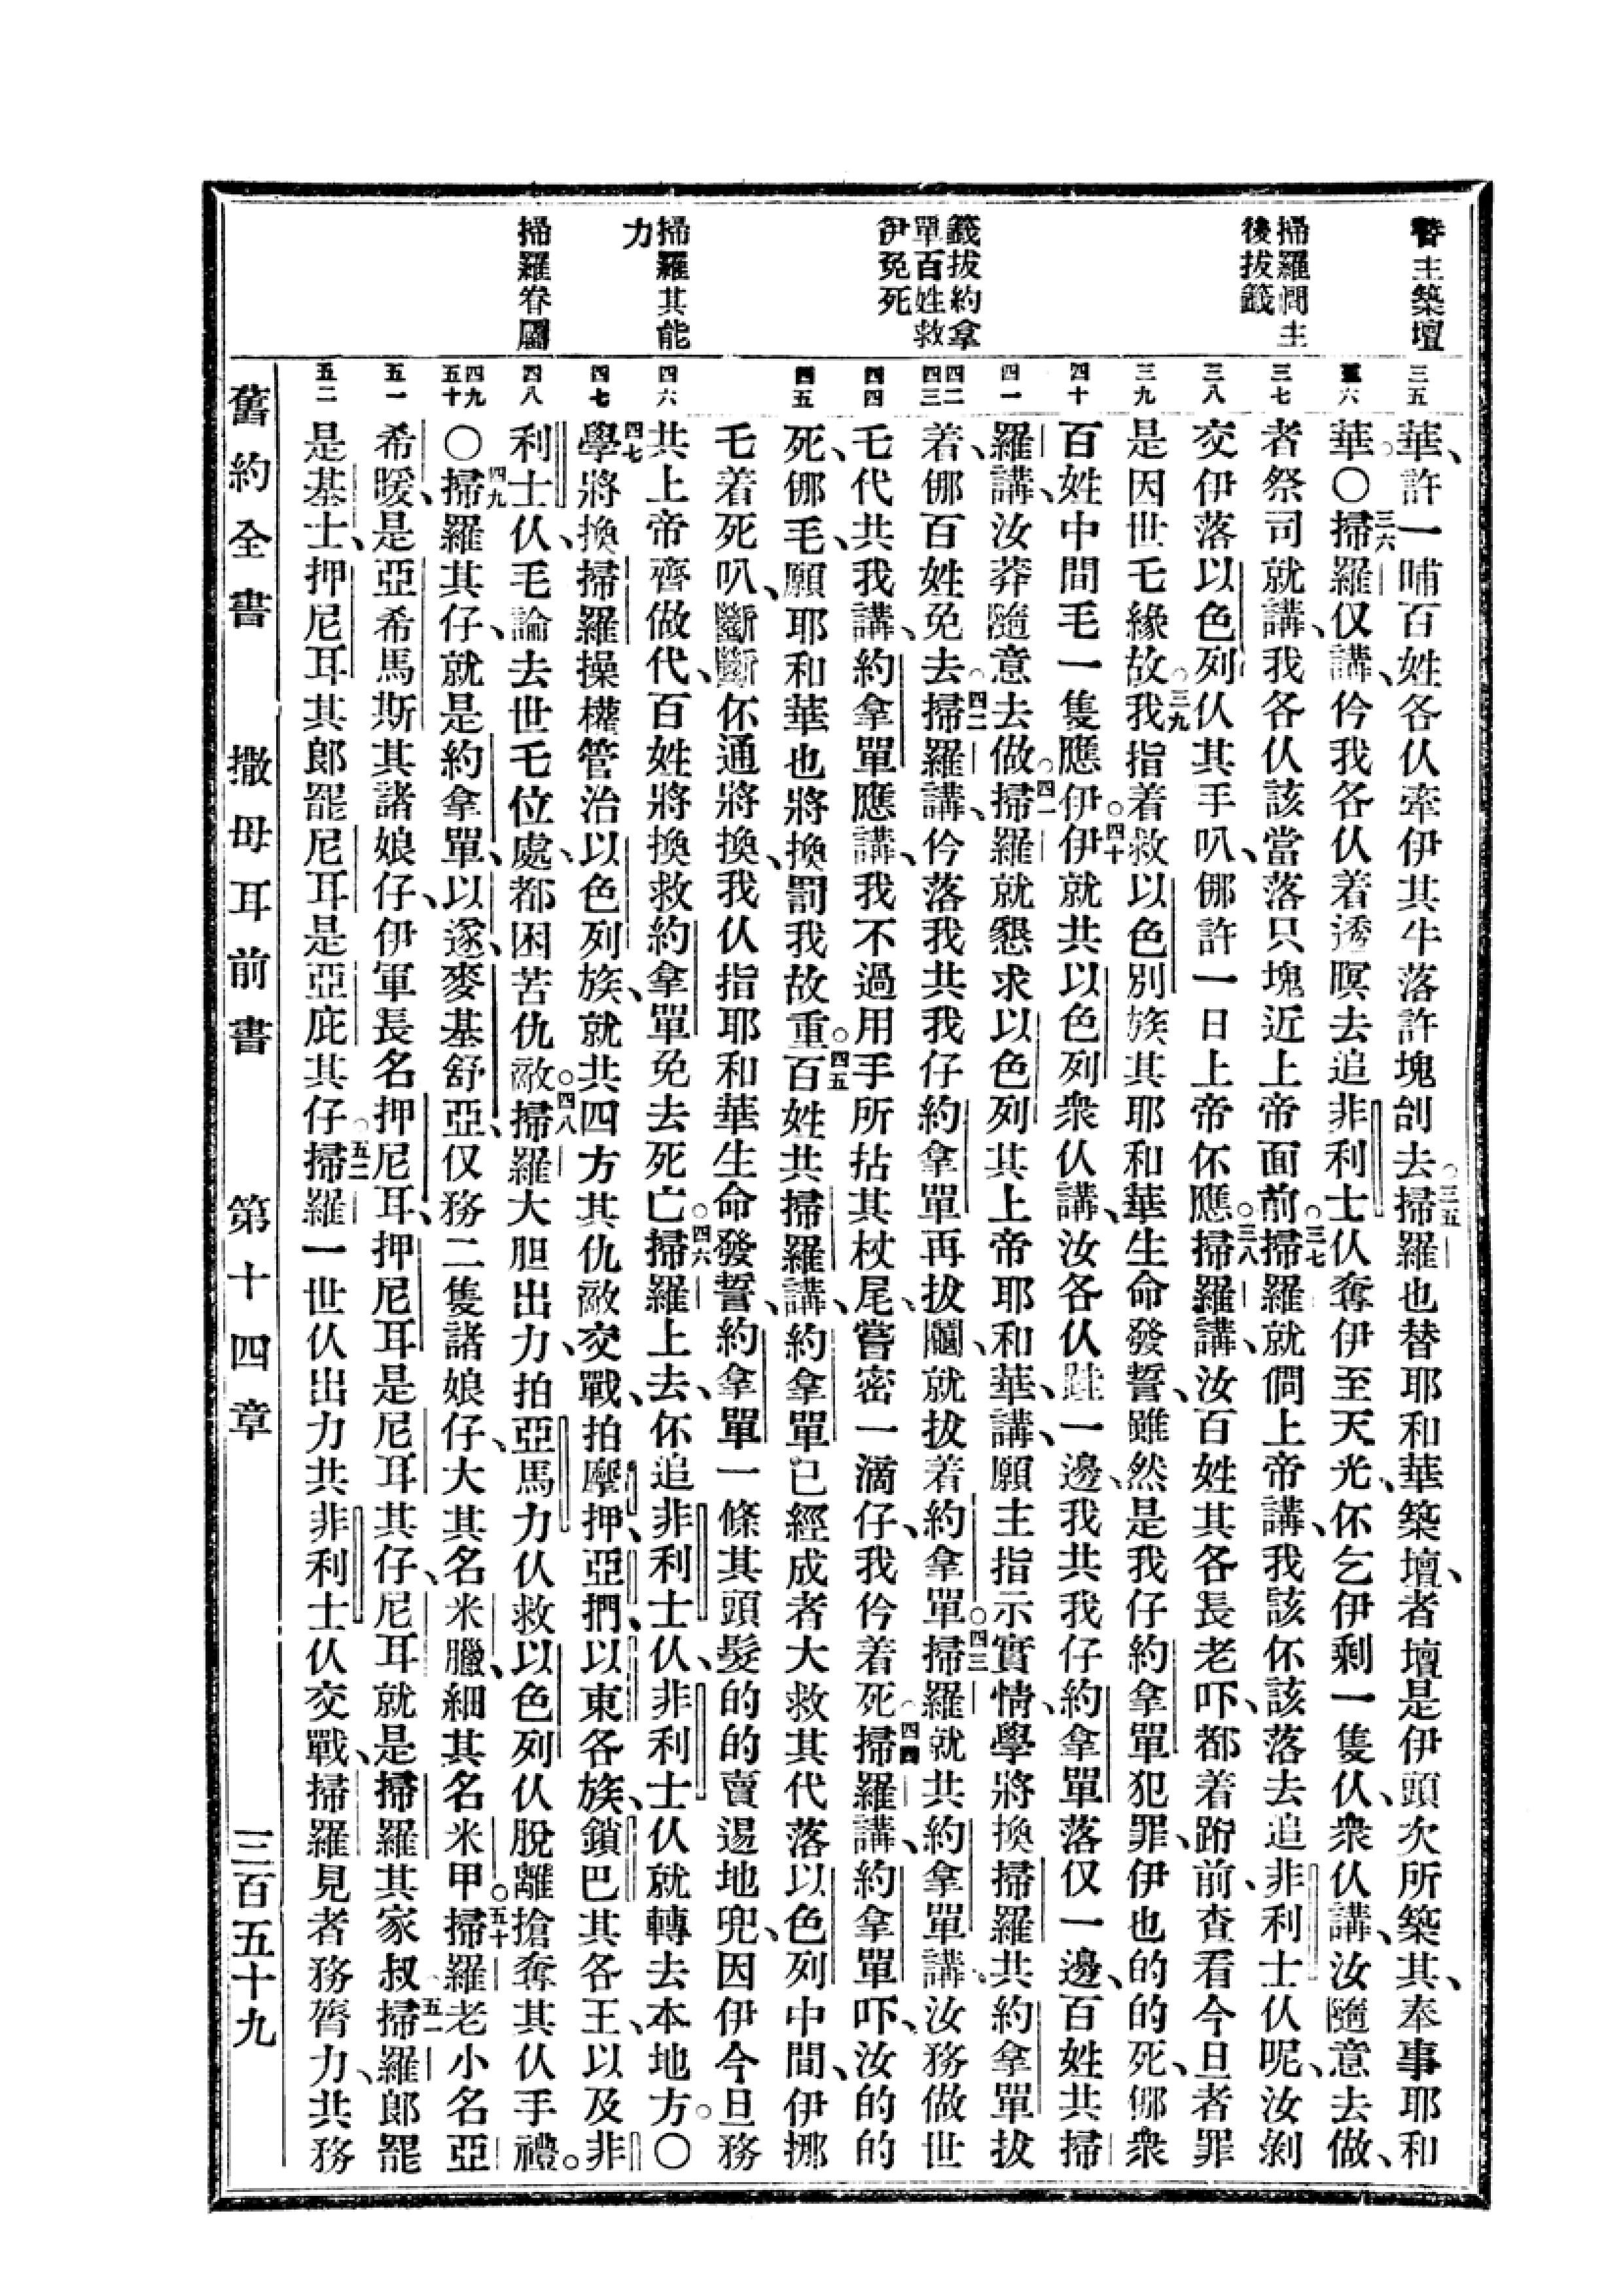 替主築壇
掃羅問主
後拔籤
籤拔約拿
單百姓救
伊免死
掃羅其能
力
掃羅眷屬
三五
三六
三七
三八
三九
四十
四一
四二
四三
四四
四五
四六
四七
四八
四九
五十
五一
五二
華、許一晡百姓各伩牽伊其牛落許塊刣去。三五掃羅也替耶和華築壇、者壇是伊頭次所築其、奉事耶和
華。〇三六掃羅仅講、仱我各伩着透暝去追非利士伩奪伊至天光、伓乞伊剩一隻伩、衆伩講、汝隨意去做、
者祭司就講、我各伩該當落只塊近上帝面前。三七掃羅就問上帝講、我該伓該落去追非利士伩呢、汝剝
交伊落以色列伩其手叭、㑚許一日上帝伓應。三八掃羅講、汝百姓其各長老吓、都着跗前、查看今旦者罪
是因世乇緣故。三九我指着救以色列族其耶和華生命發誓、雖然是我仔約拿單犯罪、伊也的的死、㑚衆
百姓中間毛一隻應伊。四十伊就共以色列衆伩講、汝各伩跬一邊、我共我仔約拿單落仅一邊、百姓共掃
羅講、汝莽隨意去做。四一掃羅就懇求以色列其上帝耶和華、講、願主指示實情、學將換掃羅共約拿單拔
着、㑚百姓免去。四二掃羅講、仱落我共我仔約拿單再拔鬮、就拔着約拿單。四三掃羅就共約拿單講、汝務做世
乇代共我講、約拿單應講、我不過用手所拈其杖尾、嘗密一滴仔、我仱着死。四四掃羅講、約拿單吓、汝的的
死、㑚毛、願耶和華也將換罰我故重。四五百姓共掃羅講、約拿單已經成者大救其代落以色列中間、伊挪
乇着死叭、斷斷伓通將換、我伩指耶和華生命發誓、約拿單一條其頭髮的的賣逿地兜、因伊今旦務
共上帝齊做代、百姓將換救約拿單免去死亡。四六掃羅上去、伓追非利士伩、非利士伩就轉去本地方。〇
四七學將換掃羅操權管治以色列族、就共四方其仇敵交戰、拍摩押、亞捫、以東各族、鎖巴其各王、以及非
利士伩、毛論去世乇位處、都困苦仇敵。四八掃羅大胆出力、拍亞馬力伩、救以色列伩脫離搶奪其伩手禮。
〇四九掃羅其仔、就是約拿單、以遂、麥基舒亞、仅務二隻諸娘仔、大其名米臘、細其名米甲。五十掃羅老小名亞
希暖、是亞希馬斯其諸娘仔、伊軍長名押尼耳、押尼耳是尼耳其仔、尼耳就是掃羅其家叔。五一掃羅郎罷
是基士、押尼耳其郎罷尼耳是亞庇其仔。五二掃羅一世伩出力共非利士伩交戰、掃羅見者務膂力、共務
舊約全書　撒母耳前書　第十四章　三百五十九